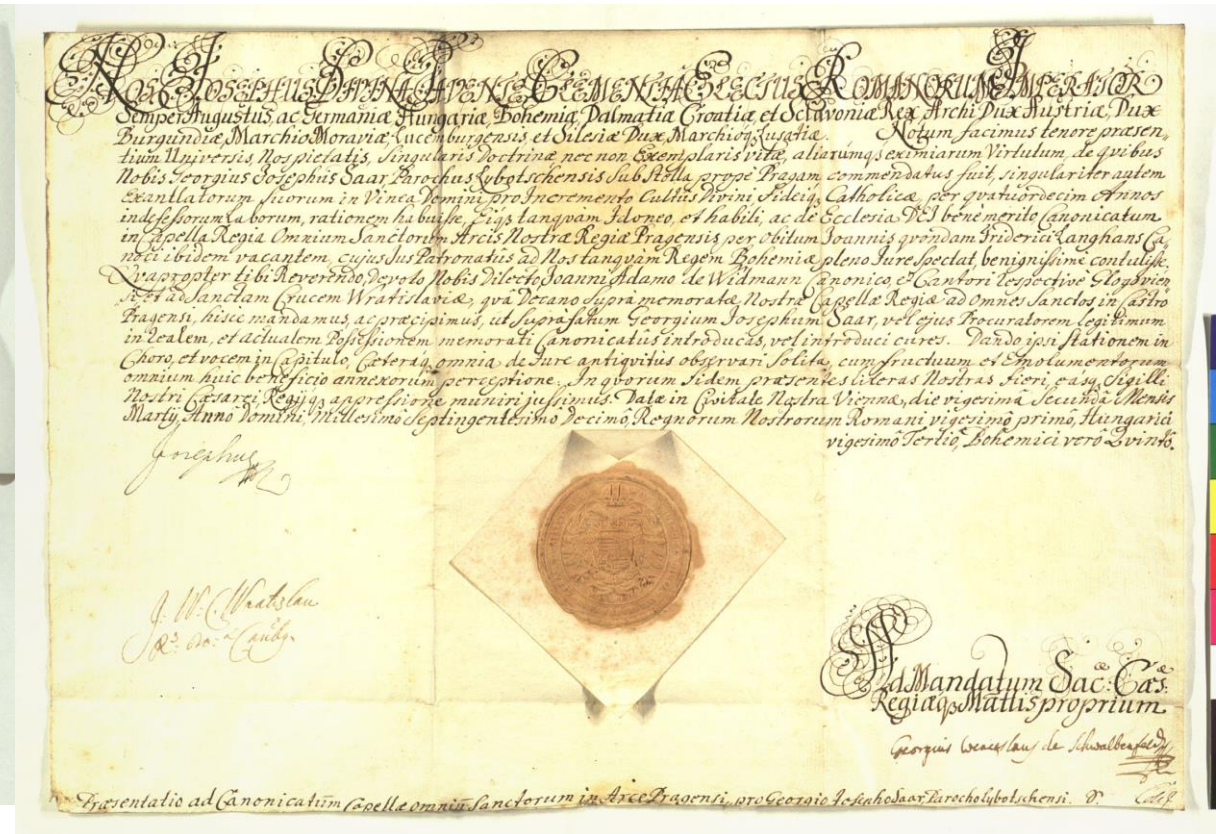 NOS JOSEPHUS DIVINA FAVENTE CLEMENTIA ELECTUS ROMANORUM IMPERATOR
Semper Augustus, ac Germaniæ, Hungariæ, Bohemiæ, Dalmatiæ Croatiæ, et Sclavoniæ Rex, Archi Dux Austriæ, Dux
Burgundiæ, Marchio Moraviæ, Lucemburgensis, et Silesiæ Dux, Marchioq Lusatiæ. Notum facimus tenore præsen-
tium Universis, Nos pietatis, singularis Doctrinæ nec non Exemplaris vitæ, aliarumq eximiarum Virtutum, de qvibus
Nobis Georgius Josephus Saar Parochus Lybotschensis Sub Stella prope Pragam commendatus fuit, singulariter autem
exantlatorum suorum in Vinea Domini pro Incremento Cultus Divini, Fideiq Catholicæ, per qvatuordecim Annos
indefessorum Laborum, rationem habuisse, Eiq tanqvam Idoneo, et habili, ac de Ecclesia DEI benemerito Canonicatum
in Capella Regia Omnium Sanctorum Arcis Nostræ Regiæ Pragensis per obitum Joannis qvondam Friderici Langhans Ca-
noci ibidem vacantem, cujus Jus Patronatus ad Nos tanqvam Regem Bohemiæ pleno Jure spectat, benignissime contulisse,
Qvapropter tibi Reverendo, Devoto Nobis Dilecto Joanni Adamo de Widmann Canonico, & Cantori respectivè Glogvien
si, et ad Sanctam Crucem Wratislaviæ, qvà Decano supra memoratæ Nostræ Capellæ Regiæ ad omnes Sanctos in Castro
Pragensi, hisce mandamus, ac præcipimus, ut supra fatum Georgium Josephum Saar, vel ejus Procuratorem legitimum
in realem, et actualem Possessionem memorati Canonicatus introducas, vel introduci cures. Dando ipsi Stationem in
Choro, et vocem in Capitulo, Cæteraq omnia de Jure antiqvitus observari solita, cum fructuum et Emolumentorum
omnium huic beneficio annexorum perceptione. In qvorum Fidem præsentes literas Nostras fieri, easq Sigilli
Nostri Cæsarei, Regijq appressione muniri jussimus. Datæ in Civitate Nostra Viennæ, die vigesimâ Secunda Mensis
Martij, Anno Domini, Millesimo Septingentesimo Decimo, Regnorum Nostrorum Romani vigesimô primô, Hungarici
vigesimô Tertiô, Bohemici verô Qvintô.
Josephus
J: W: C: Wratislau
Ad Mandatum Sac: Cæs:
Regiæq Mattis proprium
Georgius Wenceslaus de Schwalbenfeld
Præsentatio ad Canonicatum Capellæ omniũ Sanctorum in Arce Pragensi, pro Georgio Josepho Saar, Parocho Lybotschensi.